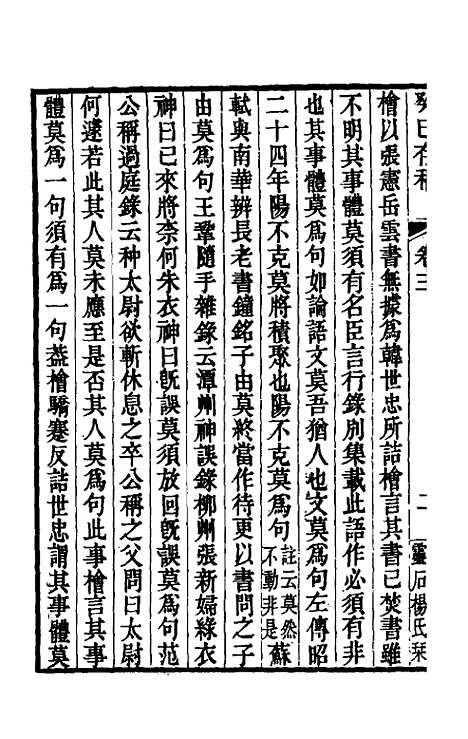 癸巳存稿 卷三 二 靈石楊氏栞
檜以張憲岳雲書無據爲韓世忠所詰檜言其書已焚書雖
不明其事體莫須有名臣言行錄別集載此語作必須有非
也其事體莫爲句如論語文莫吾猶人也文莫爲句左傳昭
二十四年陽不克莫將積聚也陽不克莫爲句註云莫然不動非是蘇
軾與南華辨長老書鐘銘子由莫終當作待更以書問之子
由莫爲句王鞏隨手雜錄云潭州神誤錄柳州張新婦綠衣
神曰已來將柰何朱衣神曰旣誤莫須放回旣誤莫爲句范
公稱過庭錄云种太尉欲斬休息之卒公稱之父問曰太尉
何遽若此其人莫未應至是否其人莫爲句此事檜言其事
體莫爲一句須有爲一句葢檜驕蹇反詰世忠謂其事體莫